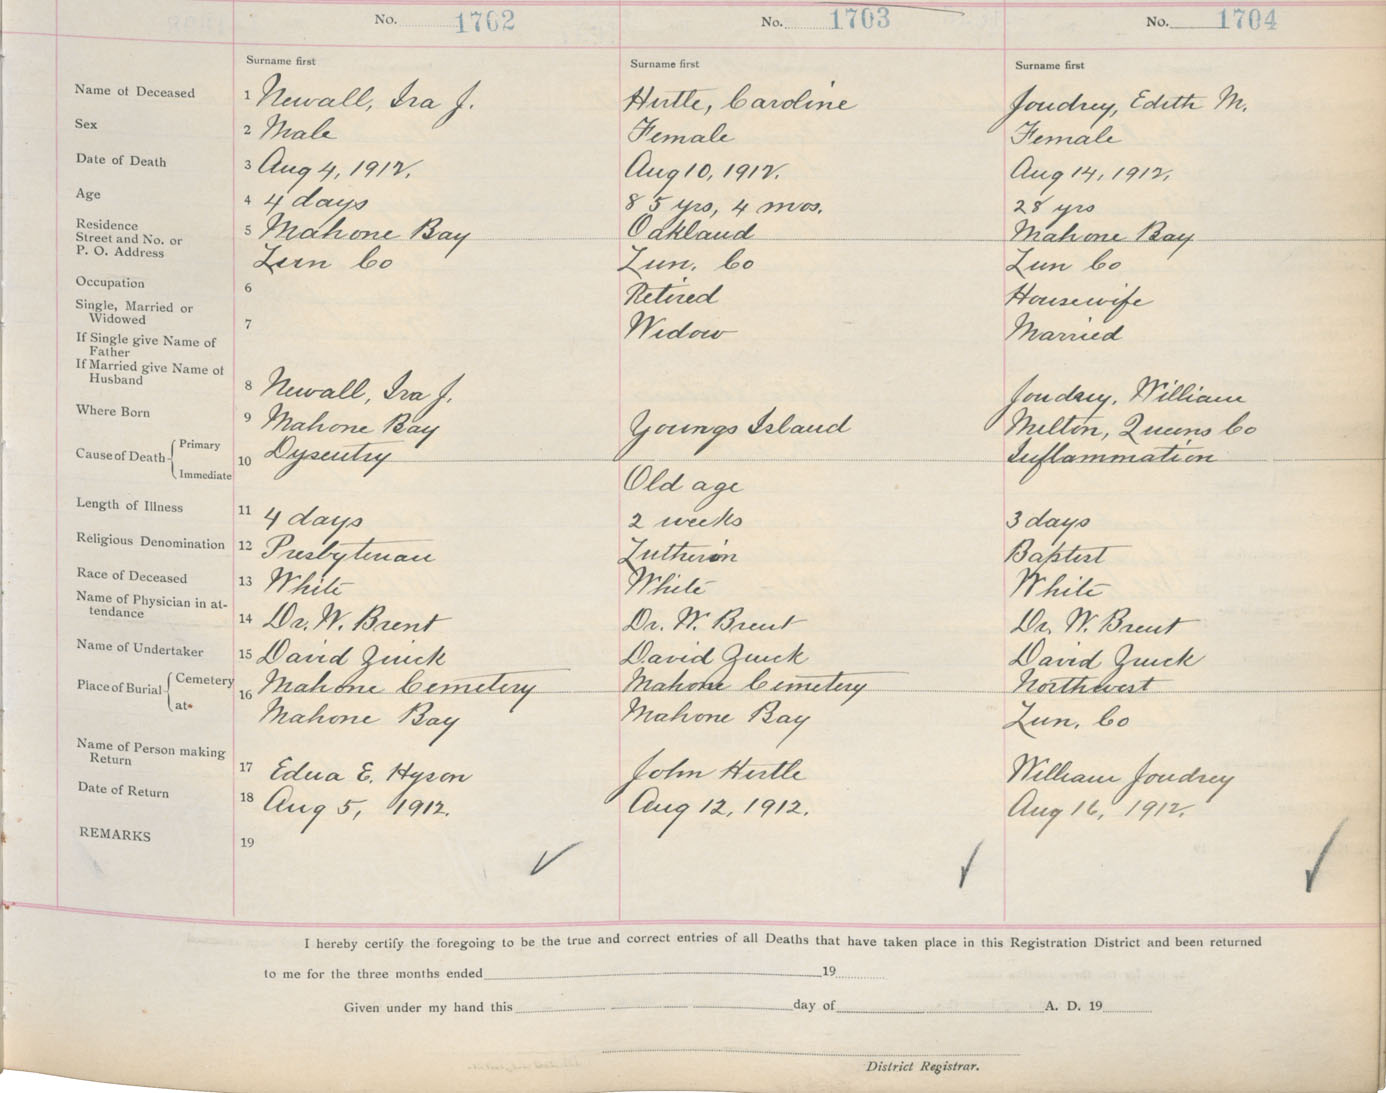 No. 1702 No. 1703 No. 1704
Surname first Surname first Surname first
Name of Deceased 1 Newall, Ira J. Hirtle, Caroline Joudrey, Edith M.
Sex 2 Male Female Female
Date of Death 3 Aug 4, 1912. Aug 10, 1912. Aug 14, 1912.
Age 4 4 days 85 yrs, 4 mos. 28 yrs
Residence
Street and No. or 5 Mahone Bay Oakland Mahone Bay
P. O. Address Lun Co Lun. Co Lun Co
Occupation 6 Retired Housewife
Single, Married or
Widowed 7 Widow Married
If Single give Name of
Father
If Married give Name of
Husband 8 Newall, Ira J. Joudrey, William
Where Born 9 Mahone Bay Youngs Island Milton, Queens Co
Cause of Death Primary 10 Dysentry Inflammation
Immediate Old age
Length of Illness 11 4 days 2 weeks 3 days
Religious Denomination 12 Presbyterian Lutheran Baptist
Race of Deceased 13 White White White
Name of Physician in at-
tendance 14 Dr. W. Brent Dr. W. Brent Dr. W. Brent
Name of Undertaker 15 David Zwick David Zwick David Zwick
Place of Burial Cemetery 16 Mahone Cemetery Mahone Cemetery Northwest
at Mahone Bay Mahone Bay Lun. Co
Name of Person making
Return 17 Edna E. Hyson John Hirtle William Joudrey
Date of Return 18 Aug 5, 1912. Aug 12, 1912. Aug 16, 1912.
REMARKS 19
I hereby certify the foregoing to be the true and correct entries of all Deaths that have taken place in this Registration District and been returned
to me for the three months ended 19
Given under my hand this day of A. D. 19
District Registrar.